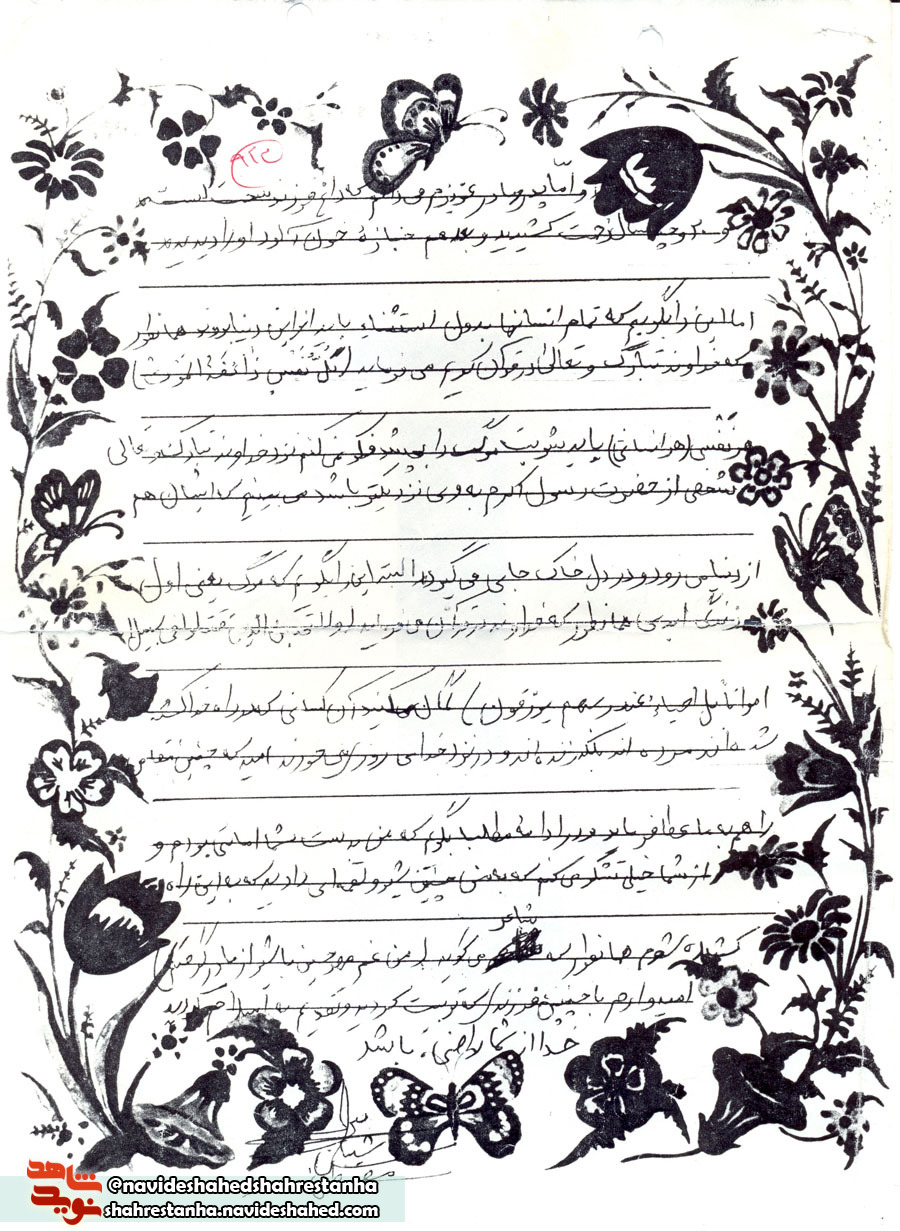 ۸۲۳
و امّا پدر و مادر عزیزم می‌دانم که داغ فرزند سخت است
و چند سال زحمت کشیدید و بعد هم جنازهٔ خون آلود او را دیدید
اما این را بگویم که تمام انسانها بدون استثناء باید از این دنیا بروند همانطور
که خداوند تبارک و تعالی در قرآن کریم می فرماید (کُلُّ نَفْسٍ ذٰائِقَةُ الْمَوْت)
هر نَفْسی (هر انسانی) باید شربت مرگ را بچشد فکر نمی کنم نزد خداوند تبارک و تعالی
شخصی از حضرت رسول اکرم به وی نزدیکتر باشد می بینیم که ایشان هم
از دنیا می رود و در دل خاک جای می گیرد البته این را بگویم که مرگ یعنی اول
زندگی ابدی همانطور که خداوند در قرآن می فرماید (ولا تحسبن الذین قتلوا فی سبیل الله
امواتاً بل احیاء عند ربهم یرزقون) گمان مکنید آن کسانی که در راه خدا کشته
شده اند مرده اند بلکه زنده اند و در نزد خدای روزی می خورند امید که چنین مقامی
را هم به ما عطا فرماید و در ادامهٔ مطلب بگویم که من در دست شما امانتی بودم و
از شما خیلی تشکر می کنم که به من چنین شیر و لقمه ای دادید که به این راه
کشیده شوم همانطور که شاعر می گوید
امیدوارم با چنین فرزندی که تربیت کردید و تقدیم به اسلام کردید
خدا از شما راضی باشد
@navideshahedshahrestanha
shahrestanha.navideshahed.com
نوید شاهد